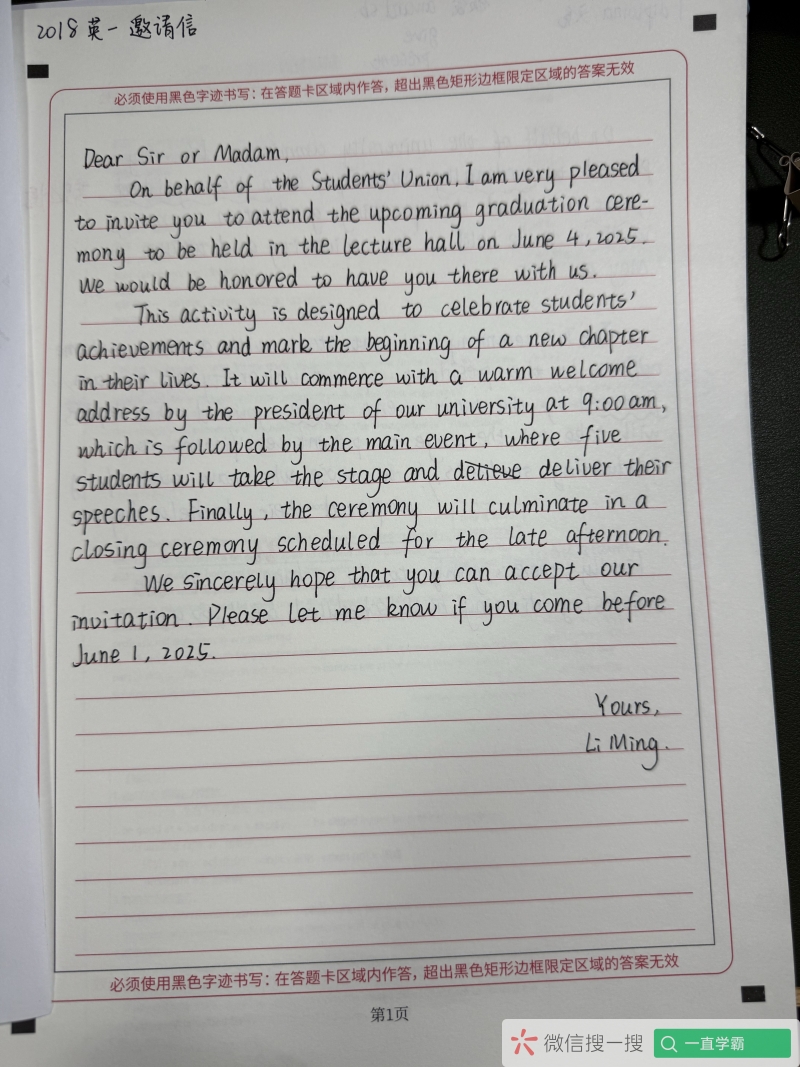 2018 英一 邀请信
必须使用黑色字迹书写：在答题卡区域内作答，超出黑色矩形边框限定区域的答案无效
Dear Sir or Madam,
On behalf of the Students' Union, I am very pleased
to invite you to attend the upcoming graduation cere-
mony to be held in the lecture hall on June 4, 2025.
We would be honored to have you there with us.
This activity is designed to celebrate students'
achievements and mark the beginning of a new chapter
in their lives. It will commerce with a warm welcome
address by the president of our university at 9:00 am,
which is followed by the main event, where five
students will take the stage and deliver their
speeches. Finally, the ceremony will culminate in a
closing ceremony scheduled for the late afternoon.
We sincerely hope that you can accept our
invitation. Please let me know if you come before
June 1, 2025.
Yours,
Li Ming.
必须使用黑色字迹书写：在答题卡区域内作答，超出黑色矩形边框限定区域的答案无效
第1页
微信搜一搜 一直学霸